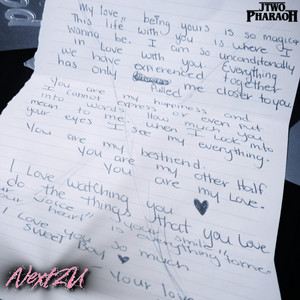 JTWO
PHARAOH
My love, being yours is so magical
This life with you is where I
wanna be. I am so unconditionally
in Love with you. Everything
we have experienced together
has only pulled me closer to you.
You are my happiness and
I cannot express or even put
into words how much you
mean to me. When I look into
your eyes I see my everything.
You are my bestfriend.
You are my other Half
You are my Love.
I Love watching you
do the things that you Love
your smile
your voice is everything to me
heart
I Love you so much
Sweet Boy
Your love
Next2U